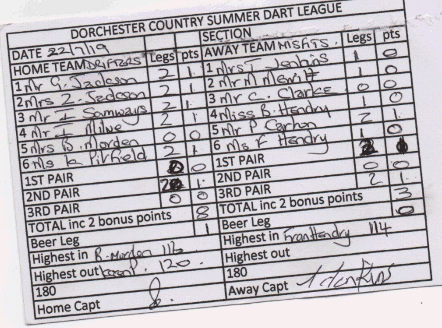 DORCHESTER COUNTRY SUMMER DART LEAGUE
DATE 22/7/19 SECTION
HOME TEAM DRIFTERS Legs pts AWAY TEAM MISFITS. Legs pts
1 Mr G. Jackson 2 1 1 Mrs T Jenkins 1 0
2 Mrs Z. Jackson 2 1. 2 Mr M Merritt 1 0
3 Mr Samways 2 1. 3 Mr C. Clarke 0 0
4 Mr Milne 2 1. 4 Miss B. Hendry 1 0
5 Mrs B. Morden 0 0 5 Mr P Carhon 2 1
6 Ms K. Pitfield 2 1 6 Ms F Hendry 1 0
1ST PAIR 0 0 1ST PAIR
2ND PAIR 2 1. 2ND PAIR 0 0
3RD PAIR 0 0 3RD PAIR 2 1.
TOTAL inc 2 bonus points 8 TOTAL inc 2 bonus points 3
Beer Leg 1 Beer Leg 0
Highest in R. Morden 116 Highest in Fran Hendry 114
Highest out Karen P. 120. Highest out
180 180
Home Capt Away Capt T Jenkins